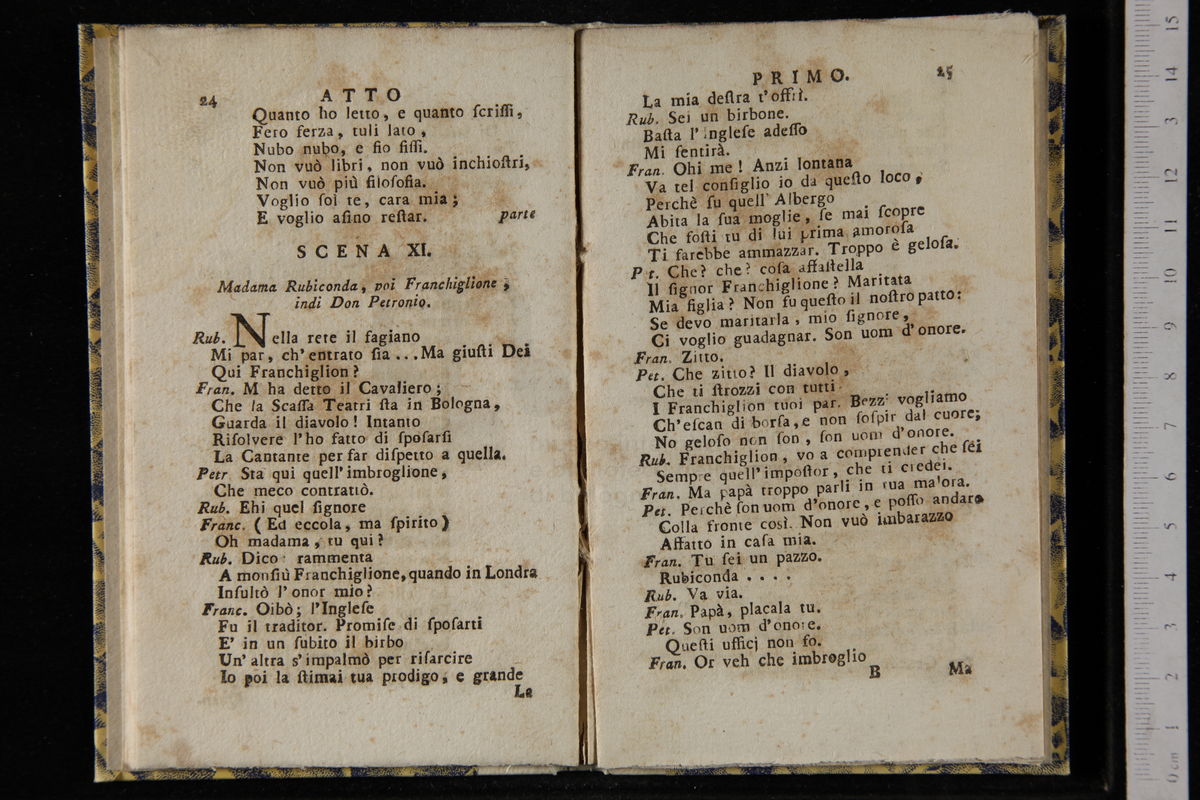 24 ATTO
Quanto ho letto, e quanto ſcriſſi,
Fero ferza, tuli lato,
Nubo nubo, e fio fiſſi.
Non vuò libri, non vuò inchioſtri,
Non vuò più filoſofia.
Voglio ſol te, cara mia;
E voglio aſino reſtar. parte
SCENA XI.
Madama Rubiconda, poi Franchiglione;
indi Don Petronio.
Rub. Nella rete il fagiano
Mi par, ch'entrato ſia... Ma giuſti Dei
Qui Franchiglion?
Fran. M ha detto il Cavaliero;
Che la Scaſſa Teatri ſta in Bologna,
Guarda il diavolo! Intanto
Riſolvere l'ho fatto di ſpoſarſi
La Cantante per far diſpetto a quella.
Petr Sta qui quell'imbroglione,
Che meco contrattò.
Rub. Ehi quel ſignore
Franc. (Ed eccola, ma ſpirito)
Oh madama, tu qui?
Rub. Dico rammenta
A monſiù Franchiglione, quando in Londra
Inſultò l'onor mio?
Franc. Oibò; l'Ingleſe
Fu il traditor. Promiſe di ſpoſarti
E' in un ſubito il birbo
Un'altra s'impalmò per riſarcire
Io poi la ſtimai tua prodigo, e grande
La
PRIMO. 25
La mia deſtra t'offrì.
Rub. Sei un birbone.
Baſta l'Ingleſe adeſſo
Mi ſentirà.
Fran. Ohi me! Anzi lontana
Va tel conſiglio io da queſto loco,
Perchè ſu quell'Albergo
Abita la ſua moglie, ſe mai ſcopre
Che foſti tu di lui prima amoroſa
Ti farebbe ammazzar. Troppo è geloſa.
Pet. Che? che? coſa affaſtella
Il ſignor Franchiglione? Maritata
Mia figlia? Non fu queſto il noſtro patto:
Se devo maritarla, mio ſignore,
Ci voglio guadagnar. Son uom d'onore.
Fran. Zitto.
Pet. Che zitto? Il diavolo,
Che ti ſtrozzi con tutti
I Franchiglion tuoi par. Bezz' vogliamo
Ch'eſcan di borſa, e non ſoſpir dal cuore;
No geloſo non ſon, ſon uom d'onore.
Rub. Franchiglion, vo a comprender che ſei
Sempre quell'impoſtor, che ti credei.
Fran. Ma papà troppo parli in tua malora.
Pet. Perchè ſon uom d'onore, e poſſo andare
Colla fronte così. Non vuò imbarazzo
Affatto in caſa mia.
Fran. Tu ſei un pazzo.
Rubiconda ....
Rub. Va via.
Fran. Papà, placala tu.
Pet. Son uom d'onore.
Queſti ufficj non fo.
Fran. Or veh che imbroglio
B Ma
15
14
3
12
11
10
9
8
7
6
5
4
3
2
1
0 cm